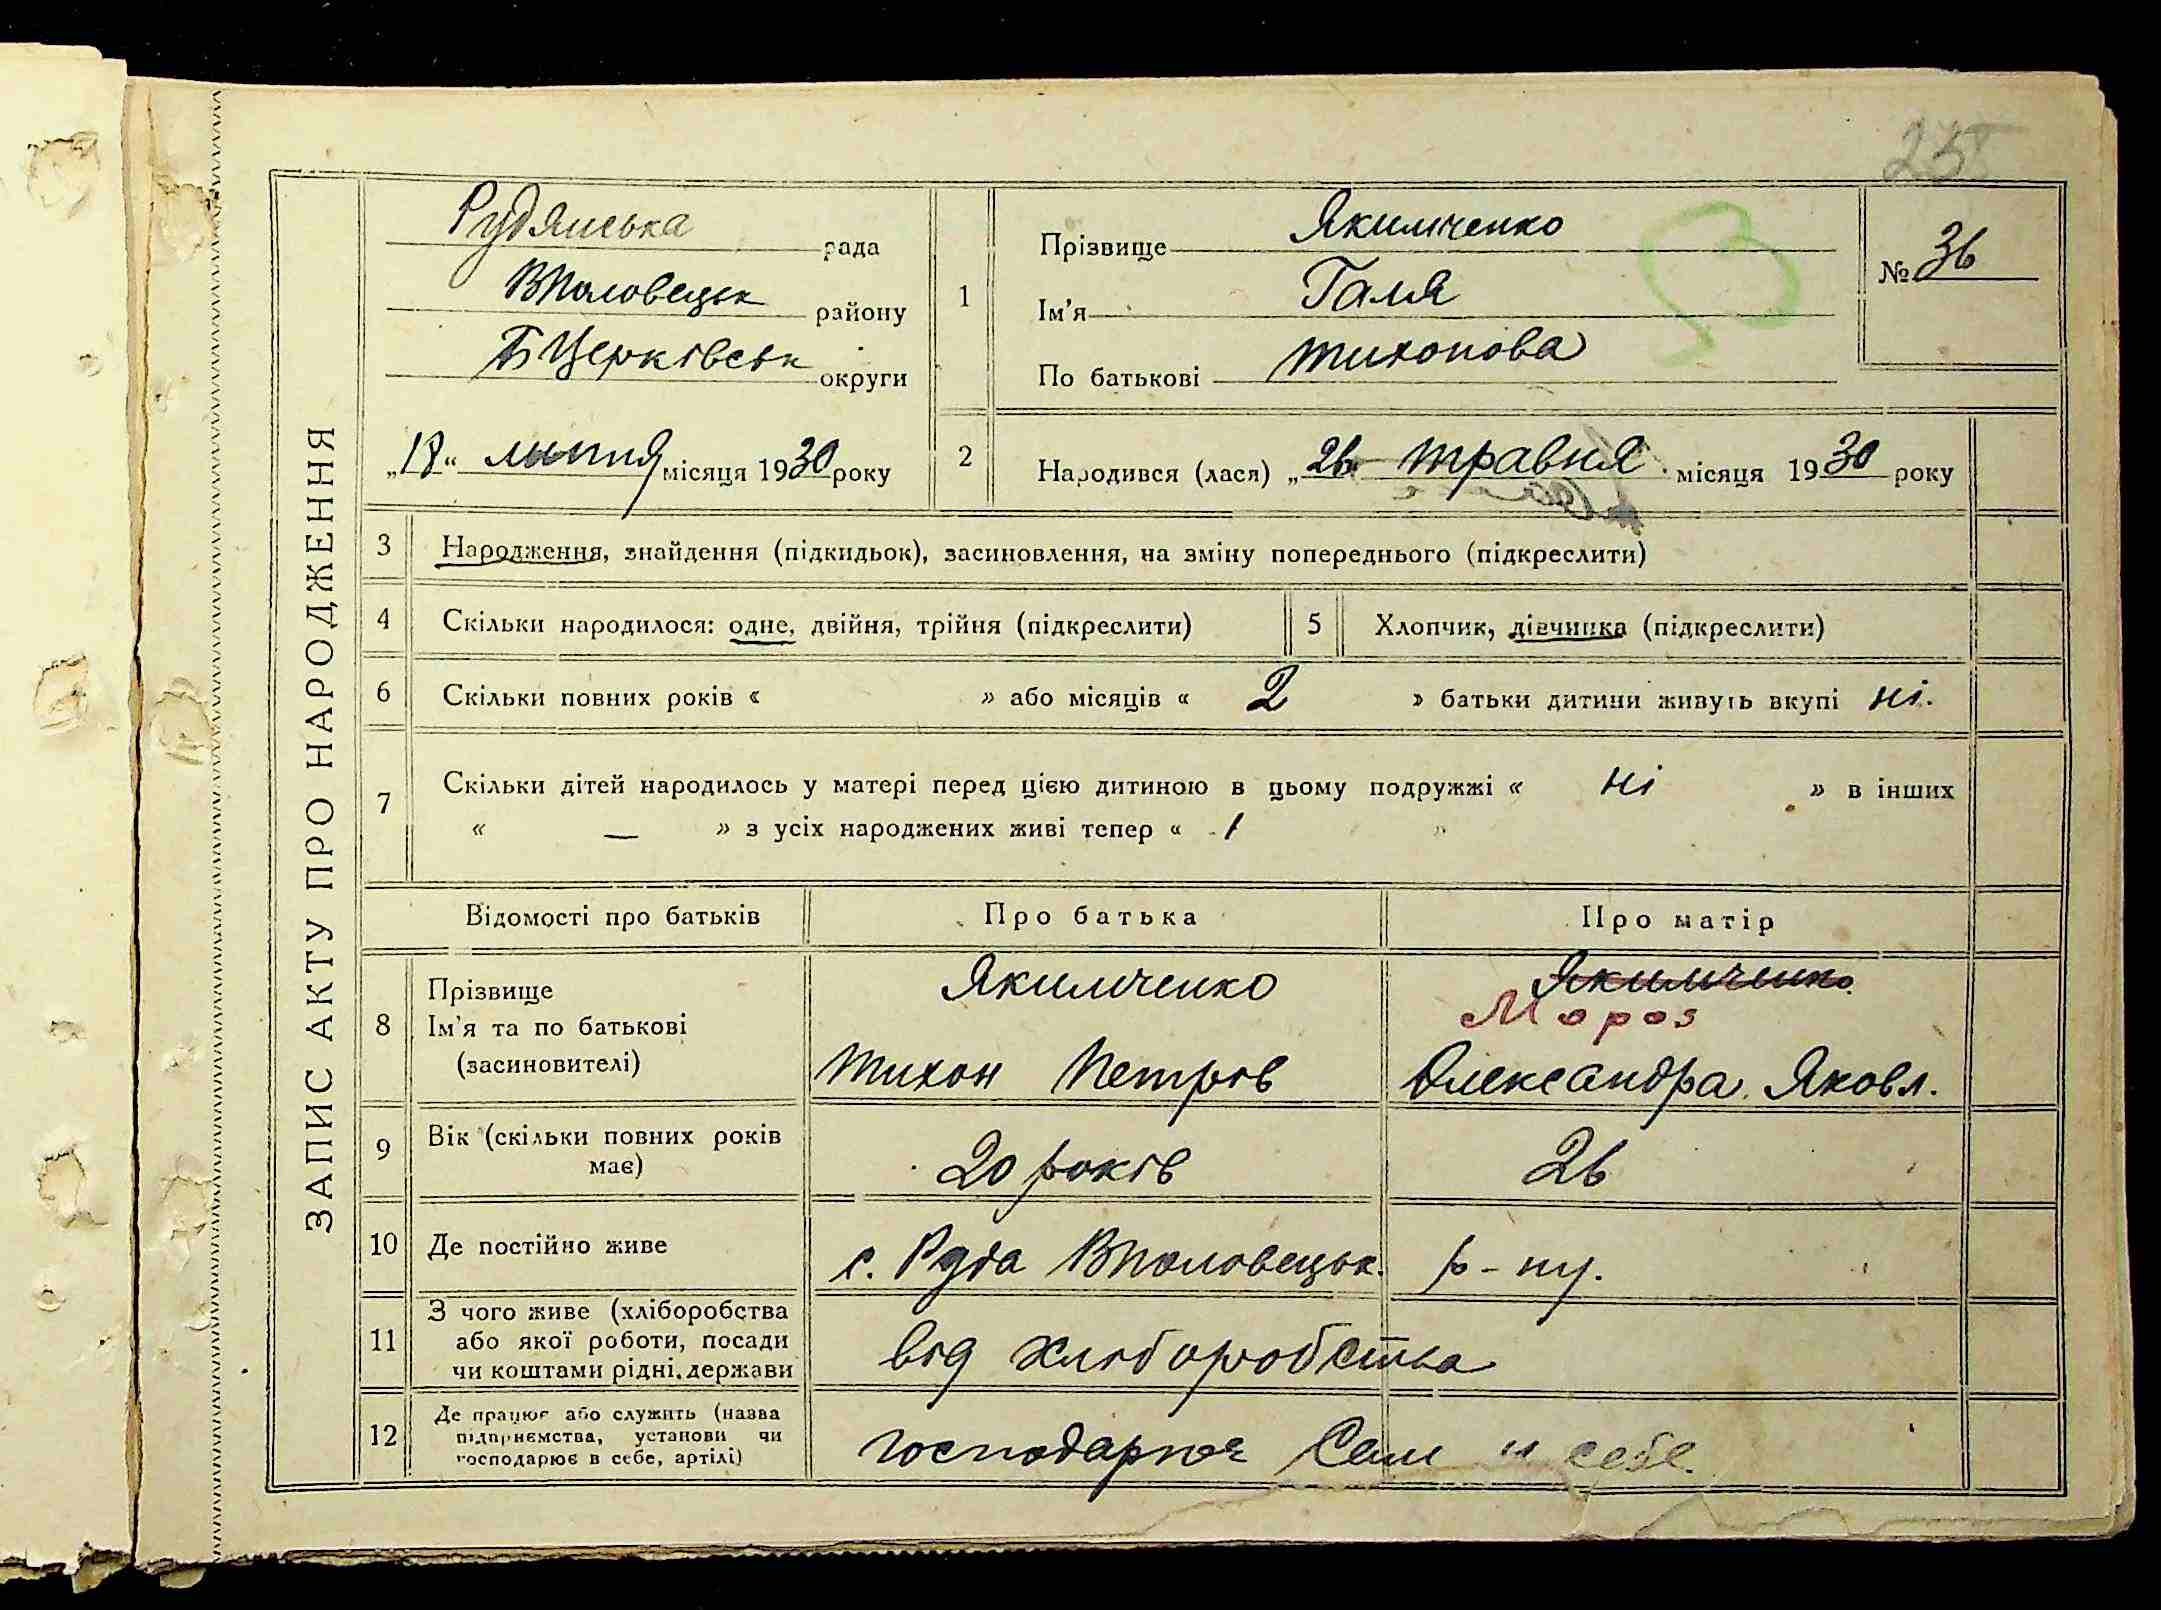 ЗАПИС АКТУ ПРО НАРОДЖЕННЯ
Рудянська рада
ВПоловецьк району
БЦерківськ округи
„18“ липня місяця 1930 року
1
Прізвище Якимченко
Ім'я Галя
По батькові Тихонова
№ 36
2
Народився (лася) „26 травня місяця 1930 року
3 Народження, знайдення (підкидьок), засиновлення, на зміну попереднього (підкреслити)
4 Скільки народилося: одне, двійня, трійня (підкреслити) 5 Хлопчик, дівчинка (підкреслити)
6 Скільки повних років « » або місяців « 2 » батьки дитини живуть вкупі ні.
7 Скільки дітей народилось у матері перед цією дитиною в цьому подружжі « ні » в інших
« — » з усіх народжених живі тепер « 1 »
Відомості про батьків Про батька Про матір
8
Прізвище Якимченко Якимченко
Мороз
Ім'я та по батькові
(засиновителі) Тихон Петров Олександра Яковл.
9 Вік (скільки повних років
має) 20 років 26
10 Де постійно живе с. Руда ВПоловецьк. р-ну.
11 З чого живе (хліборобства
або якої роботи, посади
чи коштами рідні, держави від хліборобства
12 Де працює або служить (назва
підприємства, установи чи
господарює в себе, артілі) господарює Сами и себе.